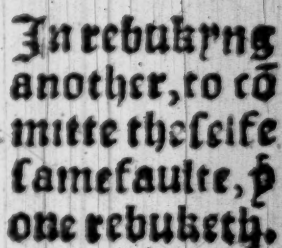 In rebukyng
another, to cō
mitte the selfe
same faulte, þͭ
one rebuketh.